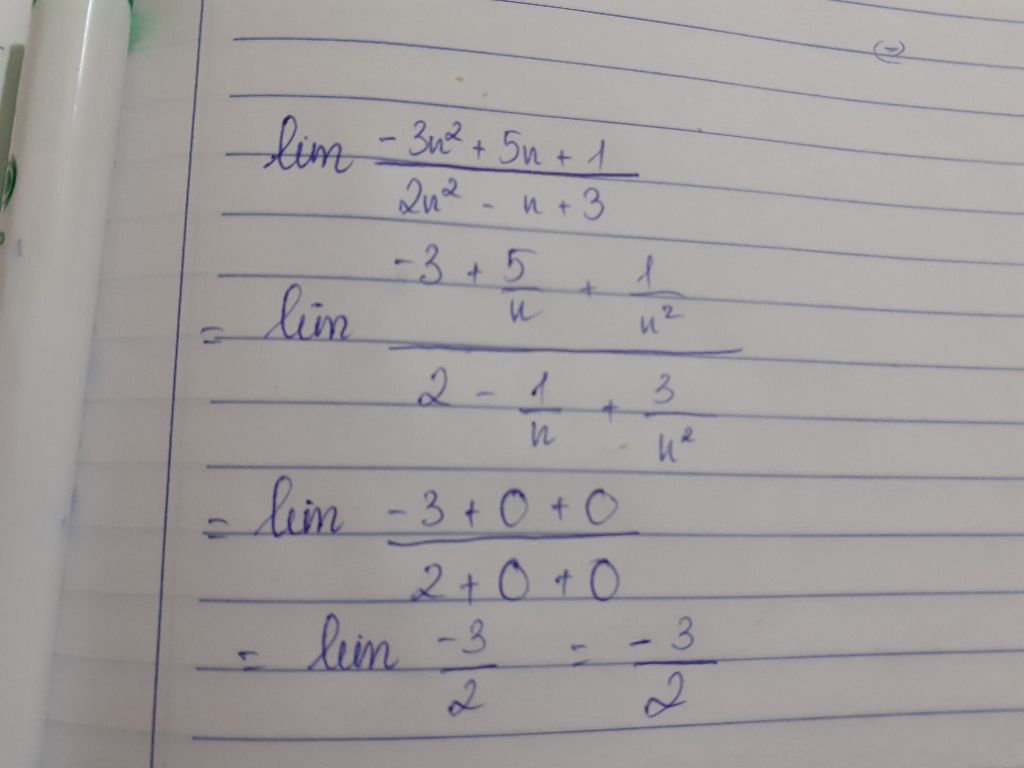 (=)
lim (-3n² + 5n + 1)/(2n² - n + 3)
= lim (-3 + 5/n + 1/n²)/(2 - 1/n + 3/n²)
= lim (-3 + 0 + 0)/(2 + 0 + 0)
= lim -3/2 = -3/2